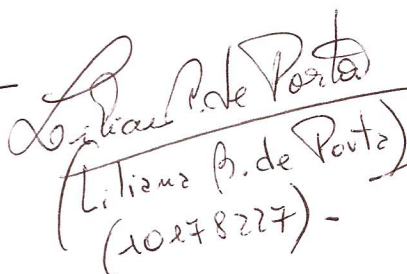 Liliana P. de Porta
(Liliana B. de Porta)
(10178227)-